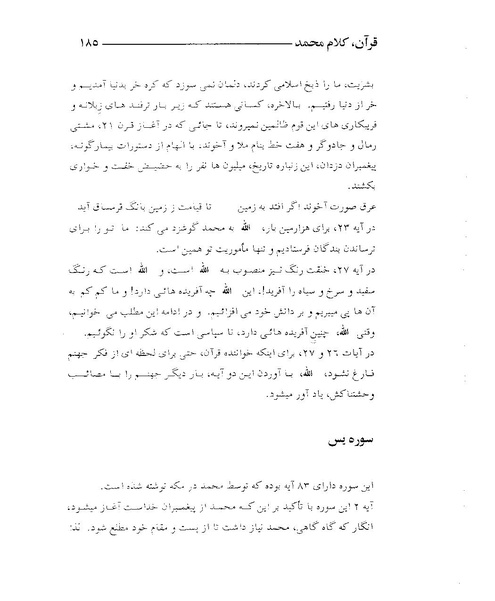 قرآن، کلام محمد ۱۸۵
بشریت، ما را ذبح اسلامی کردند، دلمان نمی سوزد که کره خر بدنیا آمدیم و
خر از دنیا رفتیم. بالاخره، کسانی هستند که زیر بار ترفند های رذیلانه و
فریبکاری های این قوم ظالمین نمیروند، تا جائی که در آغاز قرن ۲۱، مشتی
رمال و جادوگر و هفت خط بنام ملا و آخوند. با الهام از دستورات بیمارگونه،
پیغمبران دزدان، این زنباره تاریخ، میلیون ها نفر را به حضیض خفت و خواری
بکشند.
عرق صورت آخوند اگر افتد به زمین تا قیامت ز زمین بانگ قرمساق آید
در آیه ۲۳، برای هزارمین بار، الله به محمد گوشزد می کند: ما تو را برای
ترساندن بندگان فرستادیم و تنها مأموریت تو همین است.
در آیه ۲۷، خلقت رنگ نیز منصوب به الله است، و الله است که رنگ
سفید و سرخ و سیاه را آفرید!، این الله چه آفریده هائی دارد! و ما کم کم به
آن ها پی میبریم و بر دانش خود می افزائیم. و در ادامه این مطلب می خوانیم،
وقتی الله، چنین آفریده هائی دارد، نا سپاسی است که شکر او را نگوئیم.
در آیات ۲۶ و ۲۷، برای اینکه خواننده قرآن، حتی برای لحظه ای از فکر جهنم
فارغ نشود، الله، با آوردن این دو آیه، بار دیگر جهنم را با مصائب
وحشتناکش، یاد آور میشود.
سوره یس
این سوره دارای ۸۳ آیه بوده که توسط محمد در مکه نوشته شده است.
آیه ۲ این سوره با تأکید بر این که محمد از پیغمبران خداست آغاز میشود،
انگار که گاه گاهی، محمد نیاز داشت تا از پست و مقام خود مطلع شود.